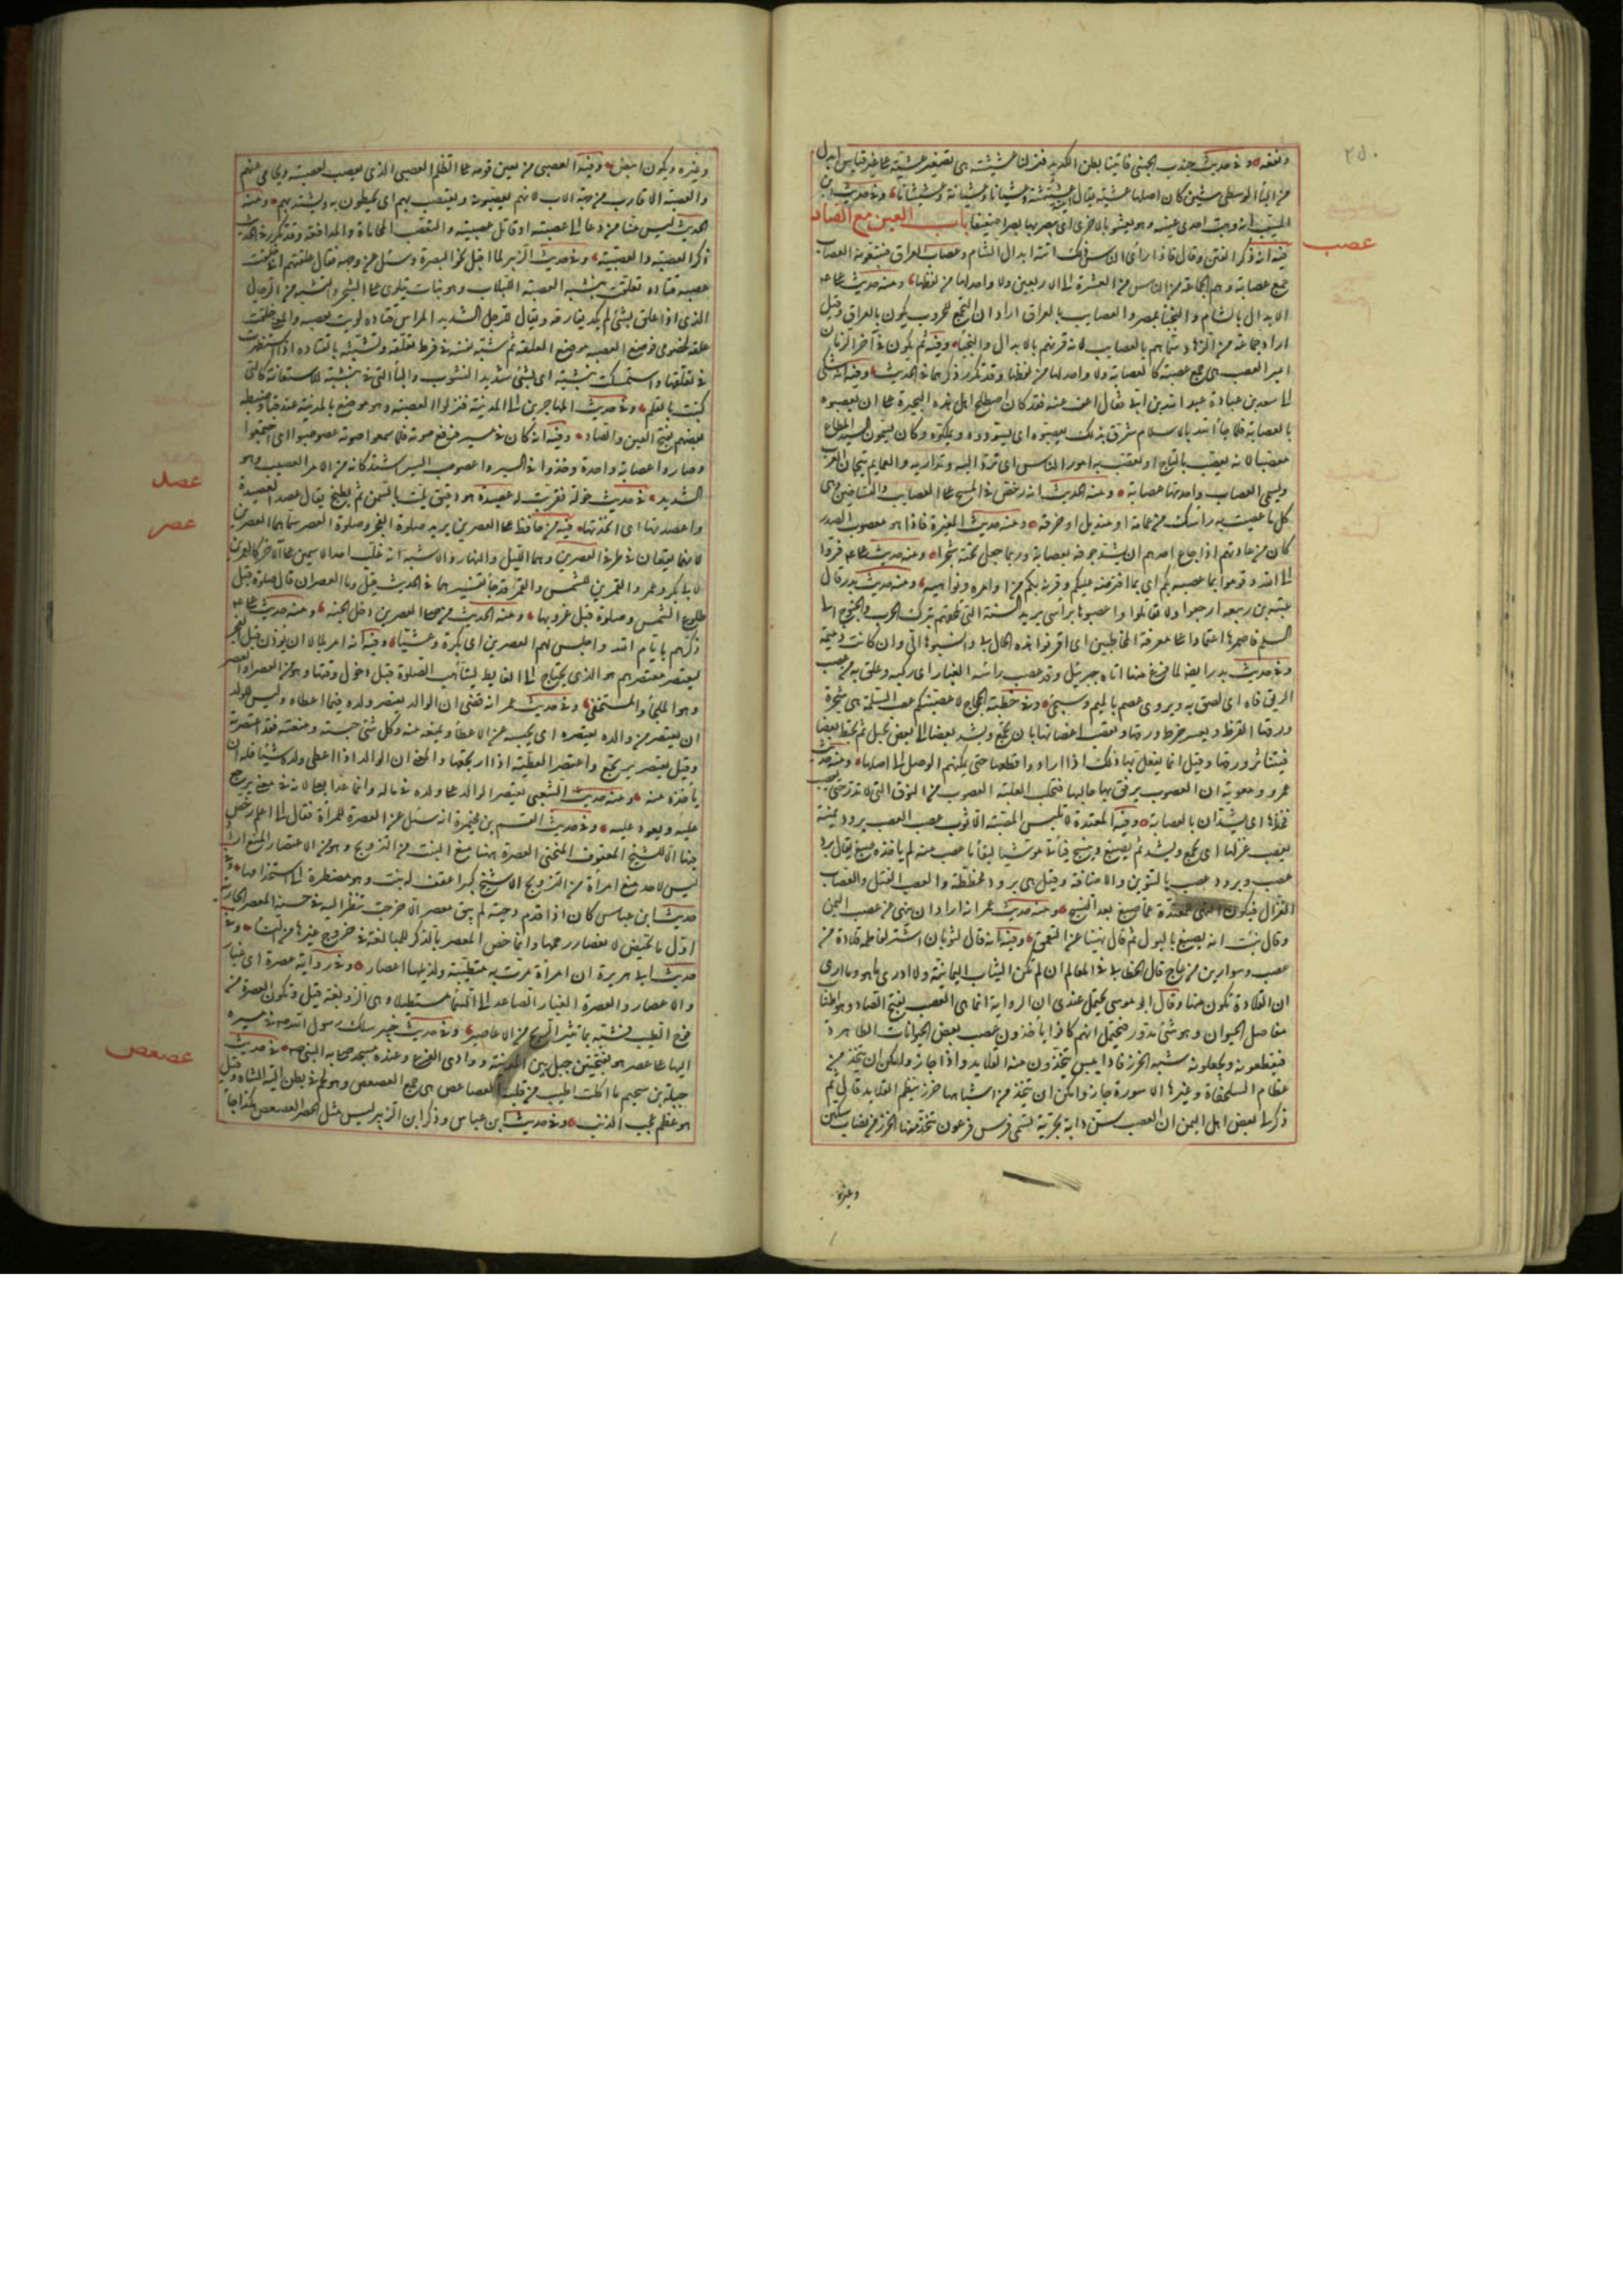 ٢٥٠
ونفقه وفي حديث جندب الجهني فاتينا بطن الكديد فنزلنا عشيشية هي تصغير عشية على غير قياس ابدل
من الياء الوسطى شين كان اصلها عشيية يقال اتيته عشيشية وعشيانا وعشيانة وعشيشيانا وفي حديث ابن
المسيب انه ذهبت احدى عينيه وهو يعشو بالاخرى اى يبصر بها بصرا ضعيفا باب العين مع الصاد
عصب
فيه انه ذكر الفتن وقال فاذا راى الناس ذلك اتته ابدال الشام وعصائب العراق فيتبعونه العصائب
جمع عصابة وهم الجماعة من الناس من العشرة الى الاربعين ولا واحد لها من لفظها ومنه حديث على
الابدال بالشام والنجباء بمصر والعصايب بالعراق اراد ان التجمع للحروب يكون بالعراق وقيل
اراد جماعة من الزهاد سماهم بالعصايب لانه قرنهم بالابدال والنجباء وفيه ثم يكون في آخر الزمان
امير العصب هى جمع عصبة كالعصابة ولا واحد لها من لفظها وقد تكرر ذكرهما في الحديث وفيه انه شكى
الى سعد بن عبادة عبد الله بن ابى فقال اعف عنه فقد كان اصطلح اهل هذه البحيرة على ان يعصبوه
بالعصابة فلما جاء الله بالاسلام شرق بذلك يعصبوه اى يسودوه ويملكوه وكان يسمون السيد المطاع
معصبا لانه يعصب بالتاج او تعصب به امور الناس اى ترد اليه وتدار به والعمايم تيجان العرب
وتسمى العصائب واحدتها عصابة ومنه الحديث انه رخص في المسح على العصايب والتساخين وهى
كل ما عصبت به راسك من عمامة او منديل او خرقة ومنه حديث المغيرة فاذا هو معصوب الصدر
كان من عادتهم اذا جاع احدهم ان يشد جوفه بعصابة وربما جعل تحتها حجرا ومنه حديث على فروا
الى الله وقوموا بما عصبه بكم اى بما افترضه عليكم وقرنه بكم من اوامره ونواهيه ومنه حديث بدر قال
عتبة بن ربيعة ارجعوا ولا تقاتلوا واعصبوها براسى يريد السبة التى تلحقهم بترك الحرب والجنوح الى
السلم فاضمرها اعتمادا على معرفة المخاطبين اى اقرنوا هذه الحال بى وانسبوها الى وان كانت ذميمة
وفي حديث بدر ايضا لما فرغ منها اتاه جبريل وقد عصب راسه الغبار اى ركبه وعلق به من عصب
الريق فاه اى لصق به ويروى عصم بالميم وسيجئ وفي خطبة الحجاج لاعصبنكم عصب السلمة هى شجرة
ورقها القرظ ويعسر خرط ورقها فتعصب اغصانها بان تجمع ويشد بعضها الى بعض بحبل ثم تخبط بعصا
فيتناثر ورقها وقيل انما يفعل بها ذلك اذا ارادوا قطعها حتى يمكنهم الوصول الى اصلها ومنه حديث
عمرو ومعوية ان العصوب يرفق بها حالبها فتحلب العلبة العصوب من النوق التى لا تدر حتى يعصب
فخذاها اى يشدان بالعصابة وفيه المعتدة لا تلبس المصبغة الا ثوب عصب العصب برود يمنية
يعصب غزلها اى يجمع ويشد ثم يصبغ وينسج فياتى موشيا لبقاء ما عصب منه لم ياخذه صبغ يقال برد
عصب وبرود عصب بالتنوين والاضافة وقيل هى برود مخططة والعصب الفتل والعصاب
الغزال فيكون النهى للمعتدة عما صبغ بعد النسج ومنه حديث عمر انه اراد ان ينهى عن عصب اليمن
وقال نبئت انه يصبغ بالبول ثم قال نهينا عن التعمق وفيه انه قال لثوبان اشتر لفاطمة قلادة من
عصب وسوارين من عاج قال الخطابى في المعالم ان لم تكن الثياب اليمانية ولا ادرى ما هو وما ارى
ان القلادة تكون منها وقال ابو موسى يحتمل عندى ان الرواية انما هى العصب بفتح الصاد وهو اطناب
مفاصل الحيوان وهو شئ مدور فيحتمل انهم كانوا ياخذون عصب بعض الحيوانات الطاهرة
فيقطعونه ويجعلونه شبه الخرز فاذا يبس يتخذون منه القلايد واذا جاز وامكن ان يتخذ من
عظام السلحفاة وغيرها الاسورة جاز وامكن ان يتخذ من اشباهها خرز ينظم القلايد قال ثم
ذكر لى بعض اهل اليمن ان العصب سن دابة بحرية تسمى فرس فرعون يتخذ منها الخرز من نصاب سكين
وغيره
وغيره ويكون ابيض وفيه العصبى من يعين قومه على الظلم العصبى الذى يغضب لعصبته ويحامى عنهم
والعصبة الاقارب من جهة الاب لانهم يعصبونه ويعتصب بهم اى يحيطون به ويشتد بهم ومنه
الحديث ليس منا من دعا الى عصبية او قاتل عصبية والتعصب المحاماة والمدافعة وقد تكرر في الحديث
ذكر العصبة والعصبية وفي حديث الزبير لما اقبل نحو البصرة وسئل عن وجهه فقال علقتهم انى خلقت
عصبة قتادة تعلقت بنشبة العصبة اللبلاب وهو نبات يتلوى على الشجر والنشبة من الرجال
الذى اذا علق بشئ لم يكد يفارقه ويقال للرجل الشديد المراس قتادة لويت بعصبة والمعنى خلقت
علقة لخصومى فوضع العصبة موضع العلقة ثم شبه نفسه في فرط تعلقه وتشبثه بالقتادة اذا استظهرت
في تعلقها واستمسكت بنشبة اى بشئ شديد النشوب والباء التى في بنشبة للاستعانة كالتى
كتبت بالقلم وفي حديث المهاجرين الى المدينة فنزلوا العصبة وهو موضع بالمدينة عند قباء وضبطه
بعضهم بفتح العين والصاد وفيه انه كان في مسير فرفع صوته فلما سمعوا صوته اعصوصبوا اى اجتمعوا
وصاروا عصابة واحدة وجدوا في السير واعصوصب السير اشتد كانه من الامر العصيب وهو
عصد
الشديد في حديث خولة فقربت له عصيدة هو دقيق يلت بالسمن ثم يطبخ يقال عصدت العصيدة
عصر
واعصدتها اى اتخذتها فيه من حافظ على العصرين يريد صلوة الفجر وصلوة العصر سماهما العصرين
لانهما يقعان في طرفى العصرين وهما الليل والنهار والاشبه انه غلب احد الاسمين على الآخر كالعمرين
لابى بكر وعمر والقمرين للشمس والقمر وقد جاء تفسيرهما في الحديث قيل وما العصران قال صلوة قبل
طلوع الشمس وصلوة قبل غروبها ومنه الحديث من صلى العصرين دخل الجنة ومنه حديث على
ذكرهم بايام الله واجلس لهم العصرين اى بكرة وعشيا وفيه انه امر بلالا ان يؤذن قبل الفجر
ليعتصر معتصرهم هو الذى يحتاج الى الغايط ليتاهب للصلوة قبل دخول وقتها وهو من العصر او العصر
وهو الملجأ والمستخفى وفي حديث عمر انه قضى ان الوالد يعتصر ولده فيما اعطاه وليس للولد
ان يعتصر من والده يعتصره اى يحبسه عن الاعطاء ويمنعه منه وكل شئ حبسته ومنعته فقد اعتصرته
وقيل يعتصر يرتجع واعتصر العطية اذا ارتجعها والمعنى ان الوالد اذا اعطى ولده شيئا فله ان
ياخذه منه ومنه حديث الشعبى يعتصر الوالد على ولده في ماله وانما عداه بعلى لانه في معنى يرجع
عليه ويعود عليه وفي حديث القسم بن مخيمرة انه سئل عن العصرة للمرأة فقال لا اعلم رخص
فيها الا للشيخ المعقوف المنحنى العصرة ههنا منع البنت من التزويج وهو من الاعتصار المنع اراد
ليس لاحد منع امرأة من التزويج الا شيخ كبير اعقف له بنت وهو مضطر الى استخدامها وفي
حديث ابن عباس كان اذا قدم دحية لم يبق معصر الا خرجت تنظر اليه من حسنه المعصر الجارية
اول ما تحيض لانعصار رحمها وانما خص المعصر بالذكر للمبالغة في خروج غيرها من النساء وفي
حديث ابى هريرة ان امرأة مرت به متطيبة ولذيلها اعصار وفي رواية عصرة اى غبار
والاعصار والعصرة الغبار الصاعد الى السماء مستطيلا وهى الزوبعة قيل وتكون العصرة من
فوح الطيب فشبه بما تثير الريح من الاعاصير وفي حديث خيبر سلك رسول الله في مسيره
اليها على عصر هو بفتحتين جبل بين المدينة ووادى الفرع وعنده مسجد صلى به النبى في حديث
عصعص
جبلة بن سحيم ما اكلت اطيب من قلية العصاعص هى جمع العصعص وهو لحم في باطن الية الشاة وقيل
هو عظم عجب الذنب وفي حديث ابن عباس وذكر ابن الزبير ليس مثل الحصر العصعص هكذا جاء